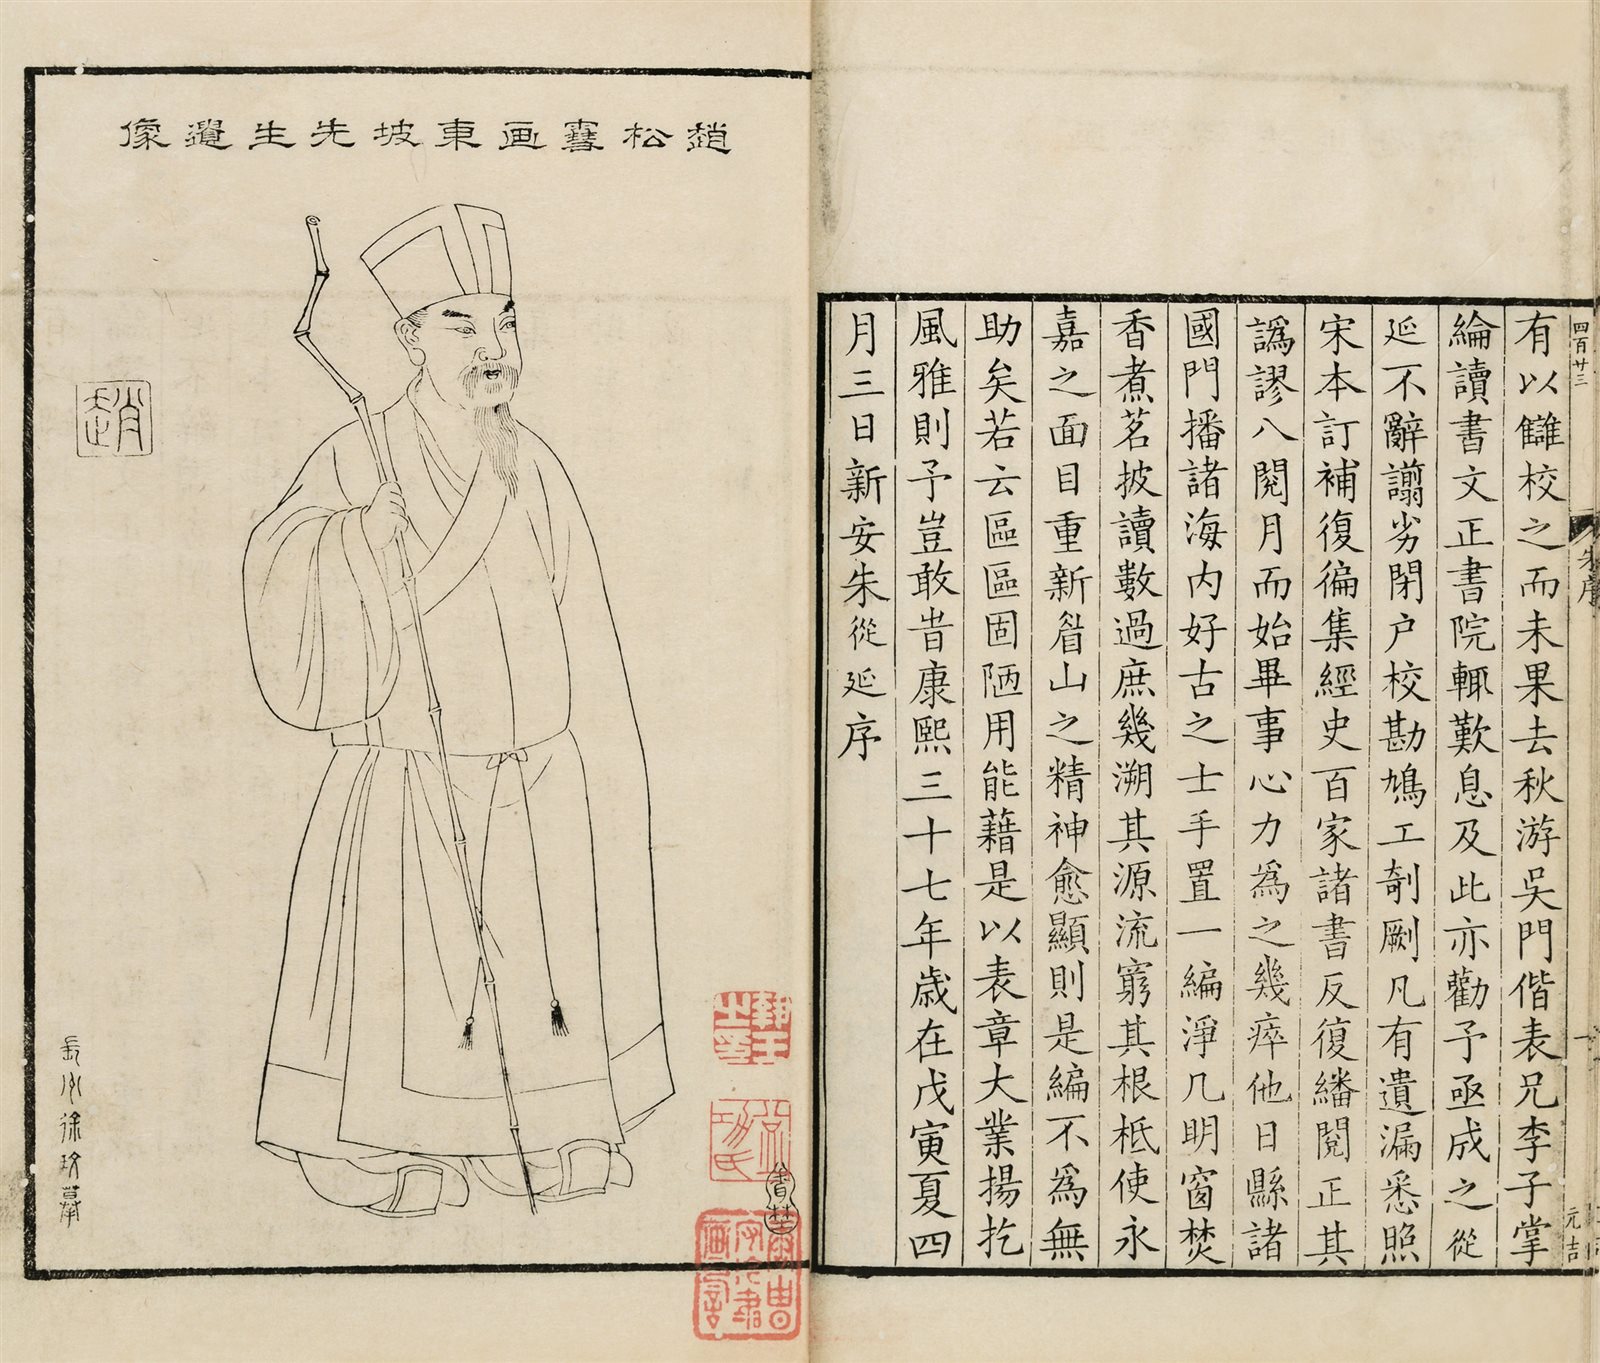 四百廿三
朱序
一
元吉
有以讎校之而未果去秋游吳門偕表兄李子掌
綸讀書文正書院輒歎息及此亦勸予亟成之從
延不辭譾劣閉户校勘鳩工剞劂凡有遺漏悉照
宋本訂補復徧集經史百家諸書反復繙閱正其
譌謬八閱月而始畢事心力為之幾瘁他日縣諸
國門播諸海内好古之士手置一編淨几明窗焚
香煮茗披讀數過庶幾溯其源流窮其根柢使永
嘉之面目重新眉山之精神愈顯則是編不為無
助矣若云區區固陋用能藉是以表章大業揚扢
風雅則予豈敢旹康熙三十七年歲在戊寅夏四
月三日新安朱從延序
趙松雪画東坡先生遺像
趙
長洲徐玫摹